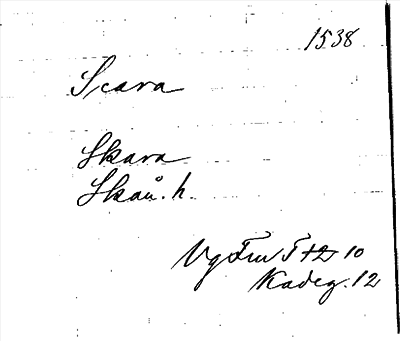 1538
Scara
Skara
Skån. h.
Vg Fm T 12 10
Kadeg. 12